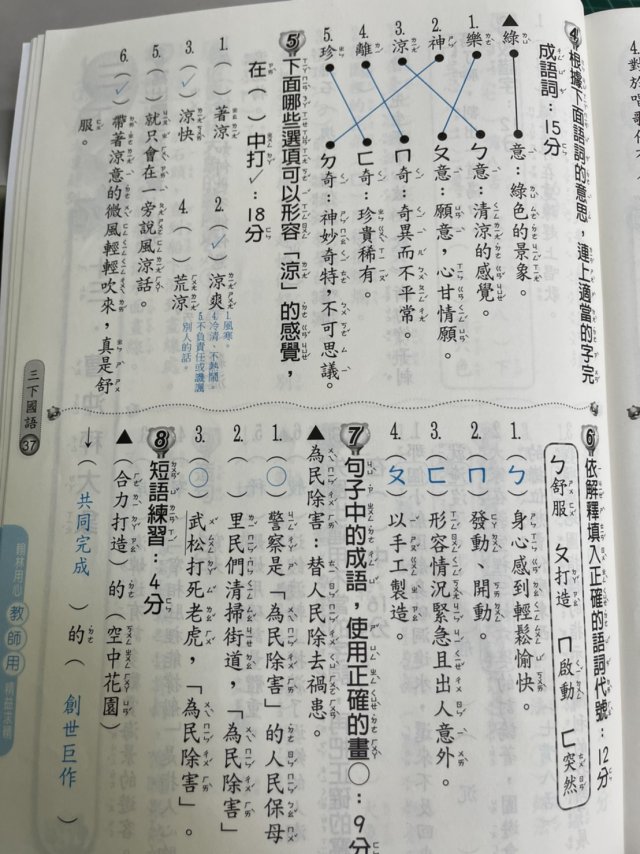 4 根據下面語詞的意思，連上適當的字完
成語詞：15分
▲綠 意：綠色的景象。
1.樂 ㄅ意：清涼的感覺。
2.神 ㄆ意：願意，心甘情願。
3.涼 ㄇ奇：奇異而不平常。
4.離 ㄈ奇：珍貴稀有。
5.珍 ㄉ奇：神妙奇特，不可思議。
5 下面哪些選項可以形容「涼」的感覺，
在（ ）中打✓：18分
1.（ ）著涼 2.（✓）涼爽
1.風寒。
4.冷清、不熱鬧。
5.不負責任或譏諷
別人的話。
3.（✓）涼快 4.（ ）荒涼
5.（ ）就只會在一旁說風涼話。
6.（✓）帶著涼意的微風輕輕吹來，真是舒
服。
6 依解釋填入正確的語詞代號：12分
ㄅ舒服 ㄆ打造 ㄇ啟動 ㄈ突然
1.（ㄅ）身心感到輕鬆愉快。
2.（ㄇ）發動、開動。
3.（ㄈ）形容情況緊急且出人意外。
4.（ㄆ）以手工製造。
7 句子中的成語，使用正確的畫○：9分
▲為民除害：替人民除去禍患。
1.（○）警察是「為民除害」的人民保母
2.（ ）里民們清掃街道，「為民除害」
3.（○）武松打死老虎，「為民除害」。
8 短語練習：4分
▲（合力打造）的（空中花園）
↓（共同完成）的（創世巨作）
三下國語 37
翰林用心 教師用 精益求精